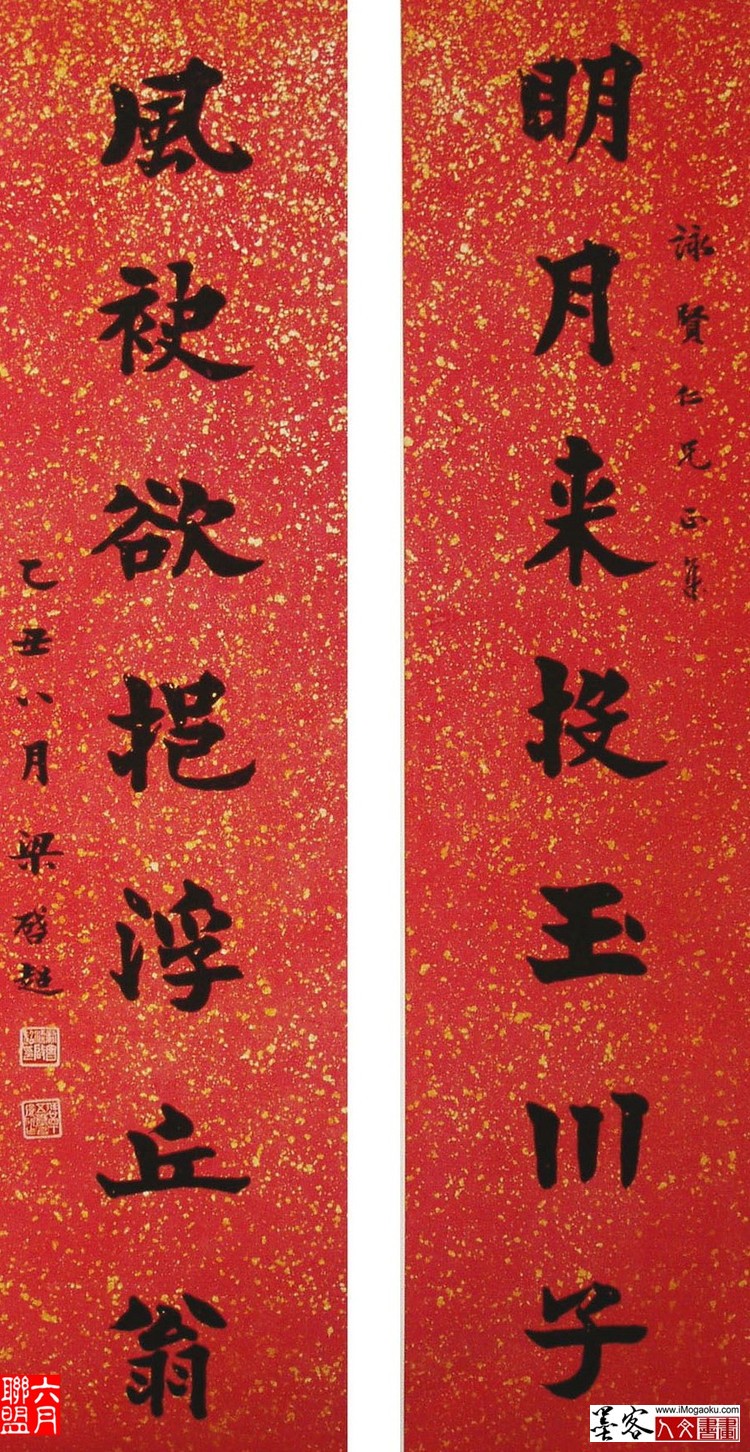 明月来投玉川子
詠賢仁兄正集
風袂欲挹浮丘翁
乙丑八月梁啓超
六月
聯盟
墨客
www.iMogaoku.com
人文書畫